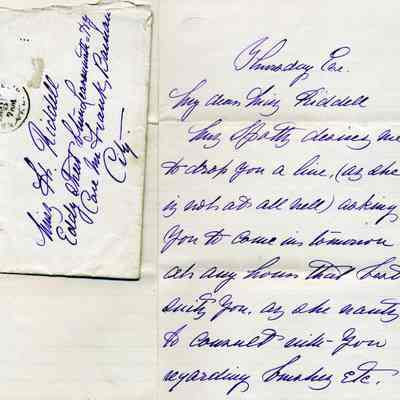 Miss Riddell
Eddy Street
Care Mr Frank
City.
Thursday Eve.
My dear Miss Riddell
Miss Spotts desires me
to drop you a line, (as she
is not at all well) asking
you to come in tomorrow
at any hour that best
suits you. as she wants
to consult with you
regarding Smokes Etc.